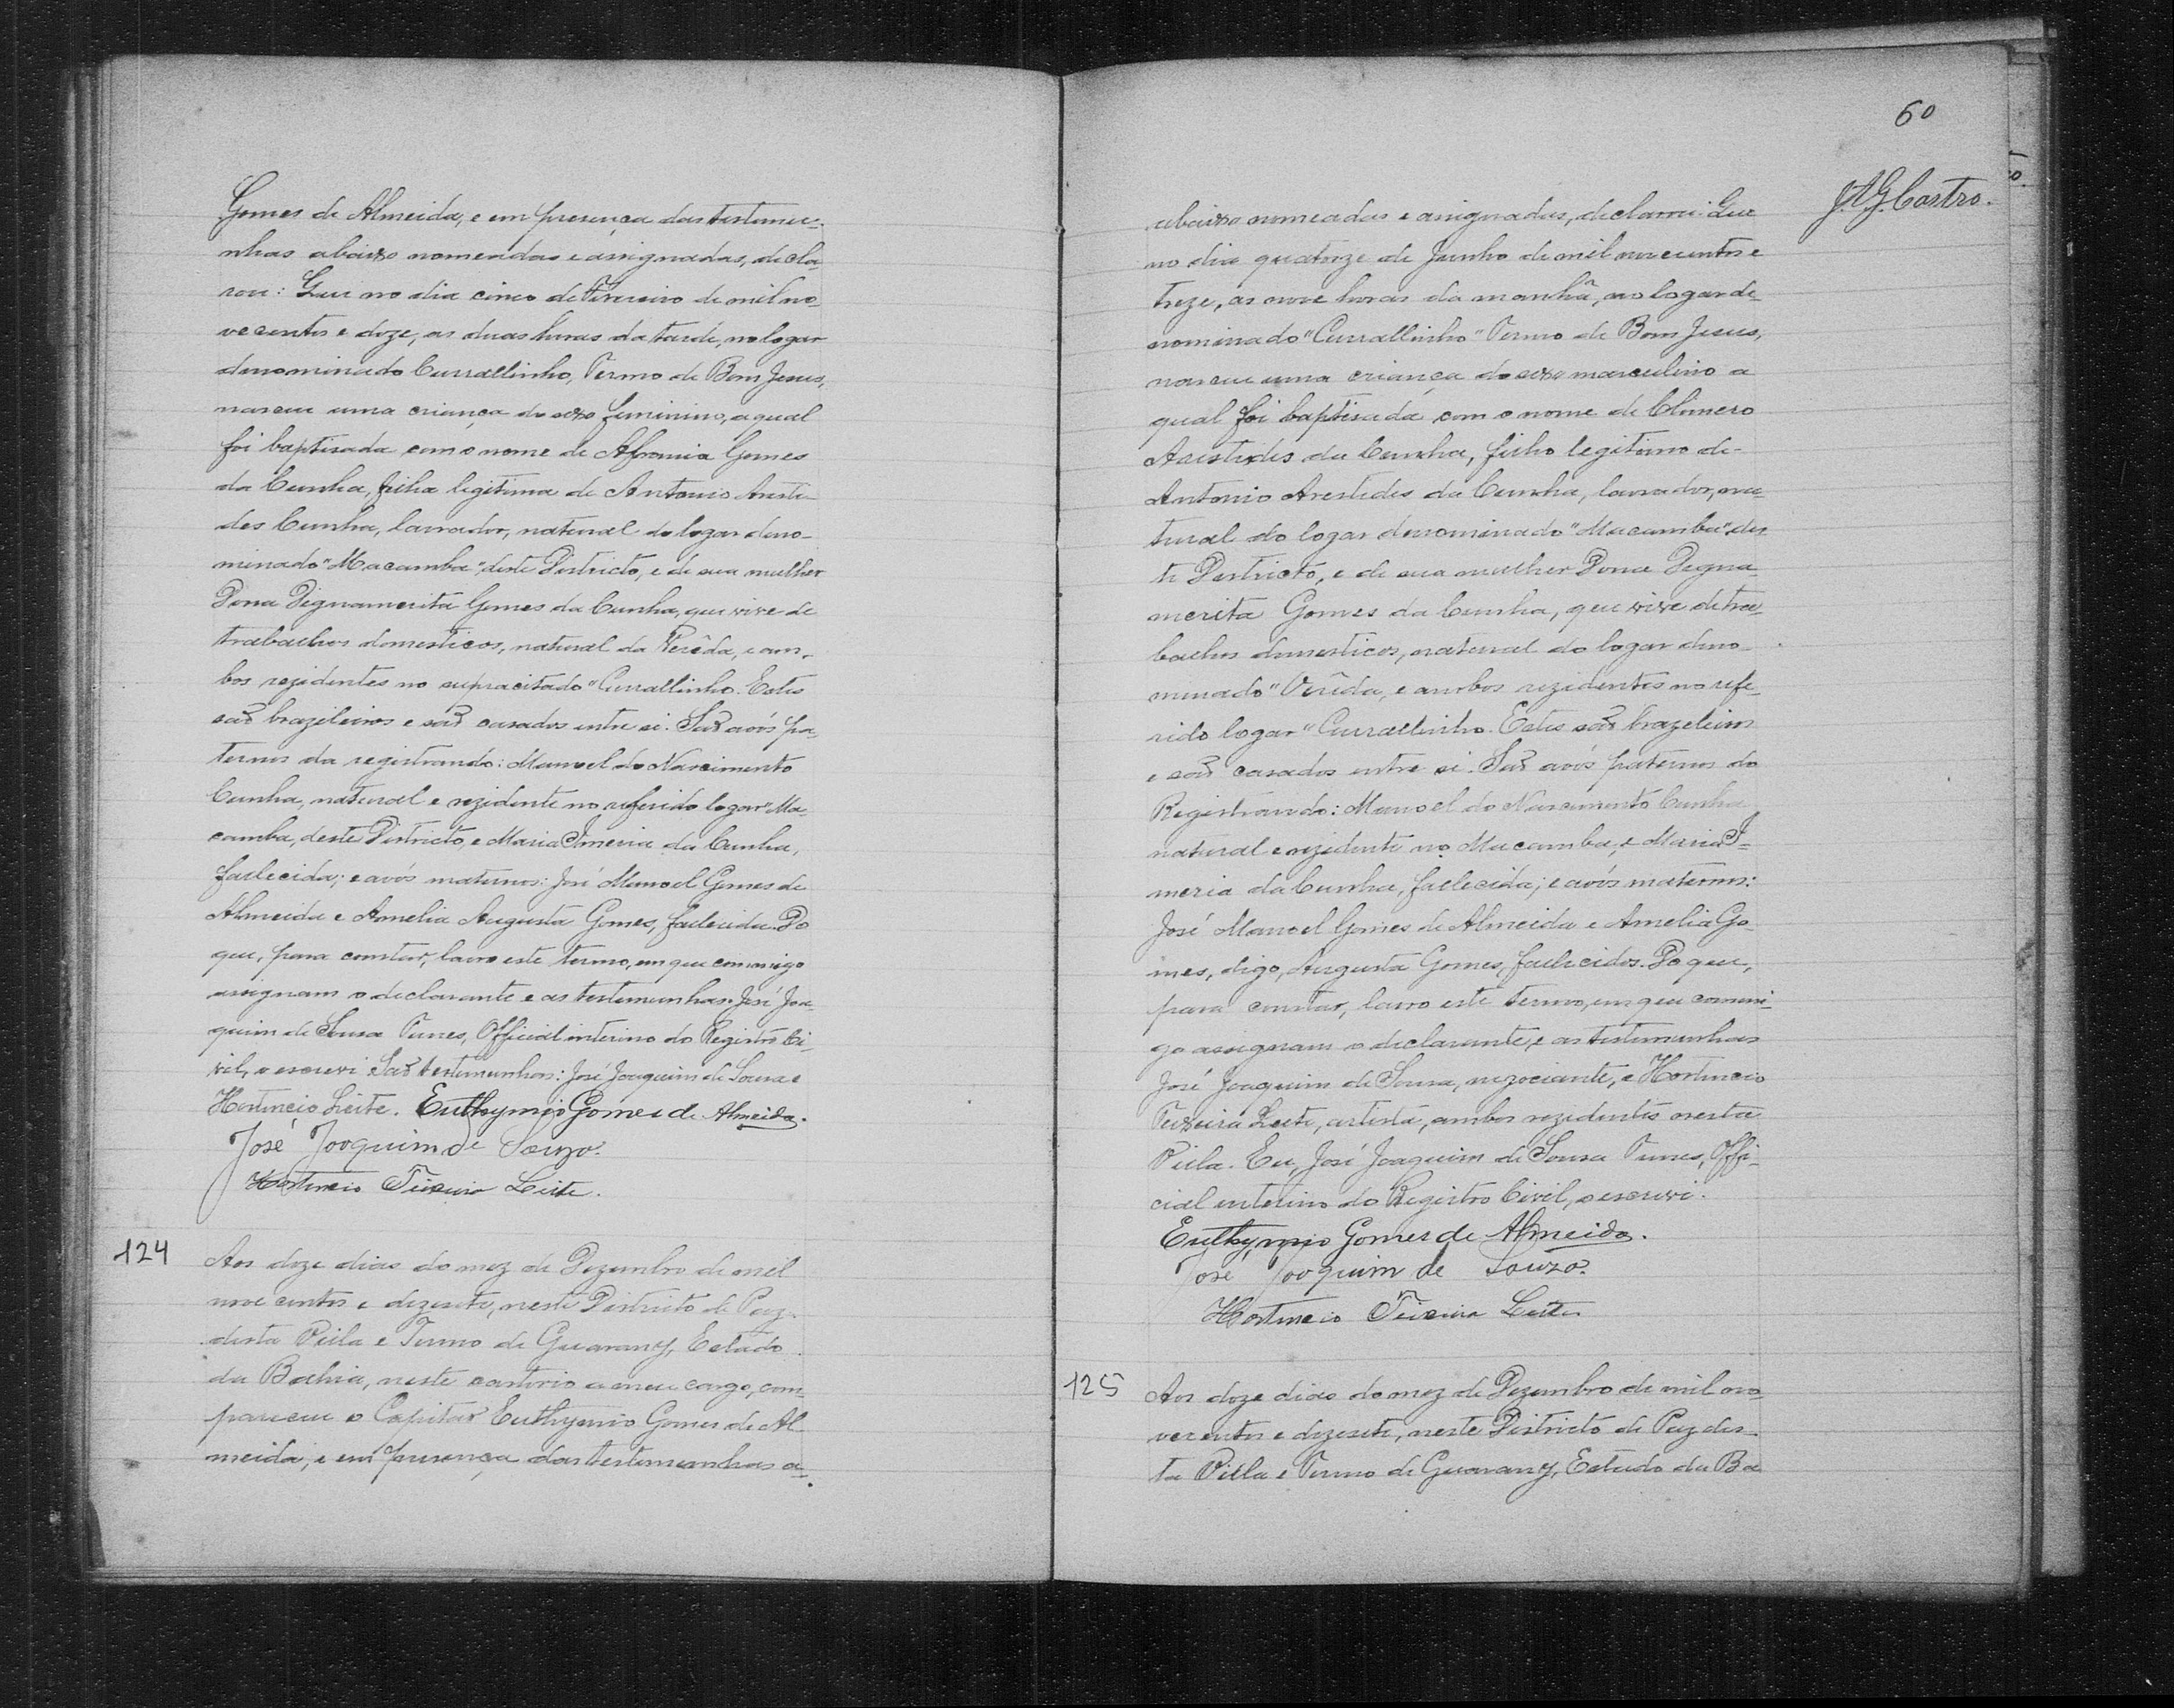 Gomes de Almeida, e em presença das testemu-
nhas abaixo nomeadas e assignadas, decla-
rou: Que no dia cinco de Fevereiro de mil no-
vecentos e doze, as duas horas da tarde, no logar
denominado Currallinho, Termo de Bom Jesus,
nasceu uma criança do sexo feminino, a qual
foi baptisada com o nome de Afronia Gomes
da Cunha, filha legitima de Antonio Aresti-
des Cunha, lavrador, natural do logar deno-
minado "Macamba", deste Districto, e de sua mulher
Dona Dignamerita Gomes da Cunha, que vive de
trabalhos domesticos, natural da Verêda, e am-
bos rezidentes no supracitado "Currallinho. Estes
são brazileiros e são casados entre si. São avós pa-
ternos da registrando: Manoel do Nascimento
Cunha, natural e rezidente no referido logar "Ma-
camba, deste Districto, e Maria Imeria da Cunha,
fallecida; e avós maternos: José Manoel Gomes de
Almeida e Amelia Augusta Gomes, fallecida. Do
que, para constar, lavro este termo, em que commigo
assignam o declarante e as testemunhas. José Joa-
quim de Sousa Tunes, Official interino do Registro Ci-
vil, o escrevi. São testemunhas: José Joaquim de Sousa e
Hortencio Leite. Euthymio Gomes de Almeida.
José Joaquim de Souza.
Hortencio Teixeira Leite.
124 Aos doze dias do mez de Dezembro de mil
nove centos e dezesete, neste Districto de Paz
desta Villa e Termo de Guarany, Estado
da Bahia, neste cartorio a meu cargo, com-
pareceu o Capitão Euthymio Gomes de Al-
meida, e em presença das testemunhas a-
60
J. A. G. Castro.
abaixo nomeadas e assignadas, declarou: Que
no dia quatorze de Junho de mil novecentos e
treze, as nove horas da manhã, no logar de-
nominado "Currallinho" Termo de Bom Jesus,
nasceu uma criança do sexo masculino a
qual foi baptisada com o nome de Clomero
Aristides da Cunha, filho legitimo de
Antonio Arestides da Cunha, lavrador, na-
tural do logar denominado "Macamba", des-
te Districto, e de sua mulher Dona Digna-
merita Gomes da Cunha, que vive de tra-
balhos domesticos, natural do logar deno-
minado "Verêda, e ambos rezidentes no refe-
rido logar "Currallinho. Estes são brazileiros
e são casados entre si. São avós paternos do
Registrando: Manoel do Nascimento Cunha
natural e rezidente no Macamba, e Maria I-
meria da Cunha, fallecida; e avós maternos:
José Manoel Gomes de Almeida e Amelia Go-
mes, digo, Augusta Gomes, fallecidos. Do que,
para constar, lavro este termo, em que commi-
go assignam o declarante, e as testemunhas
José Joaquim de Sousa, negociante, e Hortencio
Teixeira Leite, artista, ambos rezidentes nesta
Villa. Eu, José Joaquim de Sousa Tunes, Offi-
cial interino do Registro Civil, o escrevi.
Euthymio Gomes de Almeida.
José Joaquim de Souza.
Hortencio Teixeira Leite
125 Aos doze dias do mez de Dezembro de mil no-
vecentos e dezesete, neste Districto de Paz des-
ta Villa e Termo de Guarany, Estado da Ba